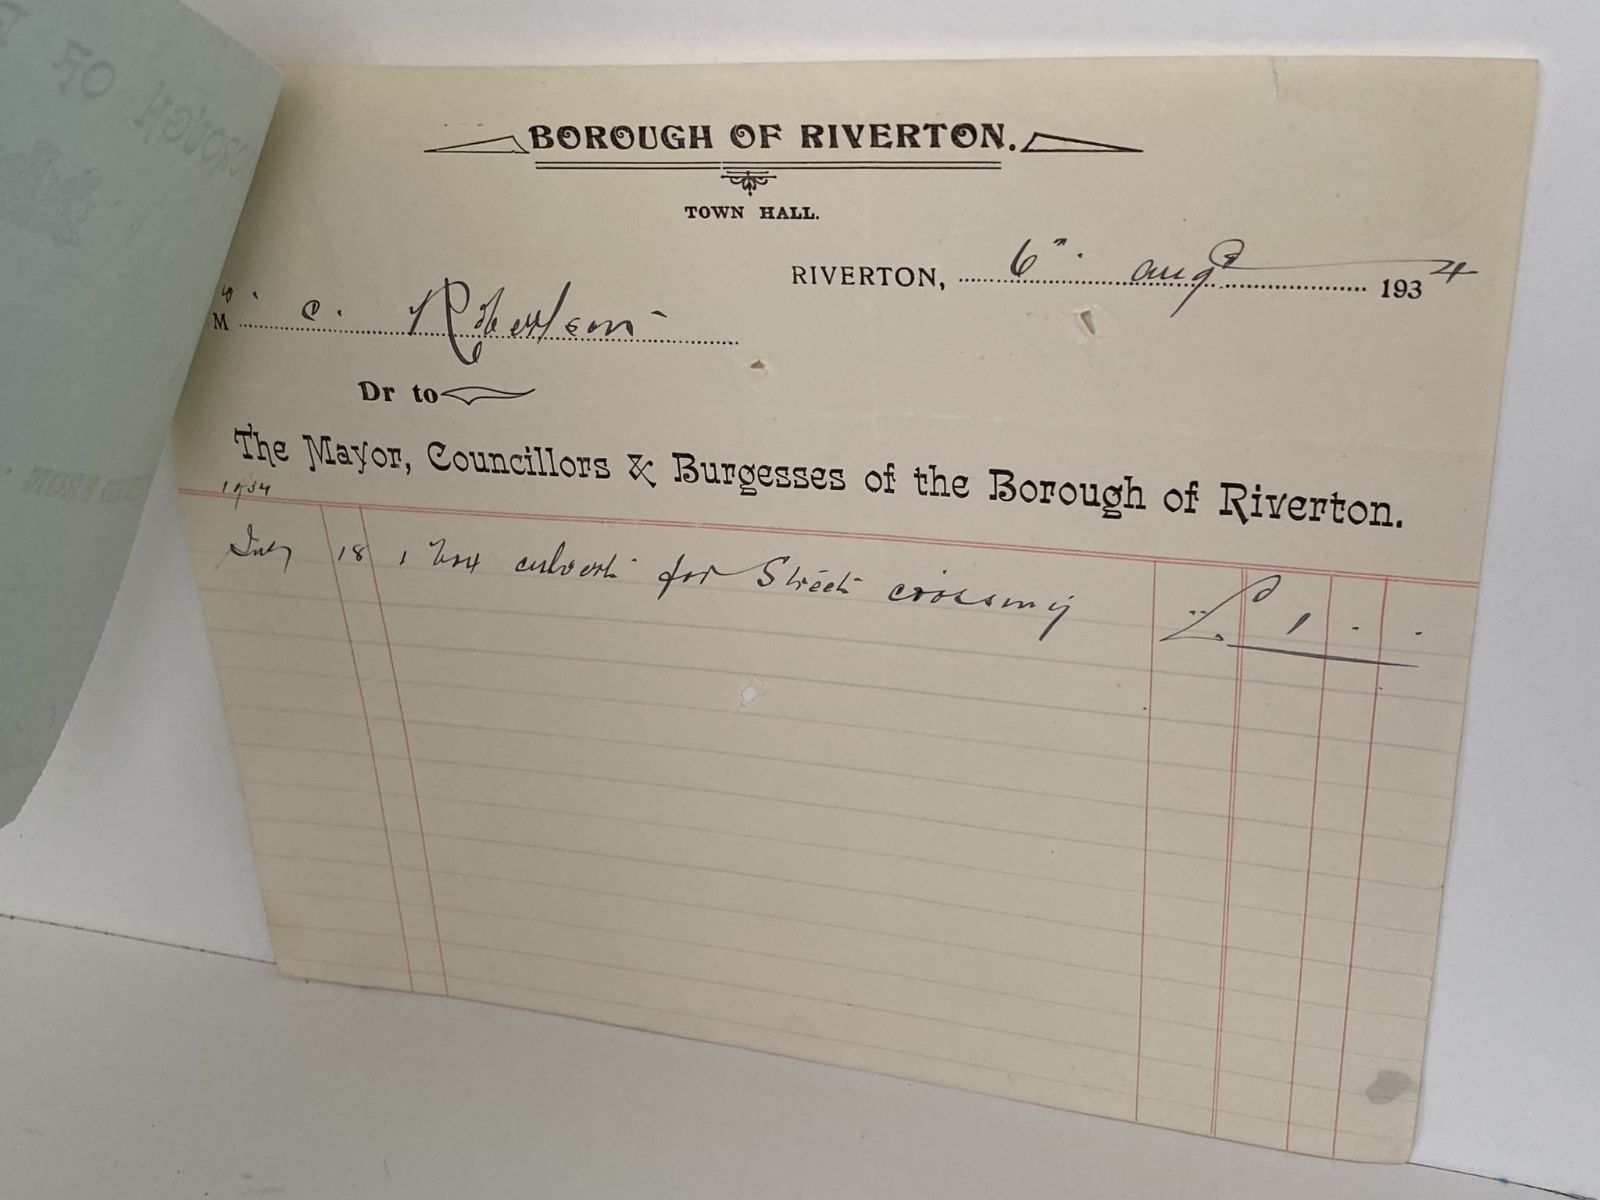 BOROUGH OF
BOROUGH OF RIVERTON.
TOWN HALL.
RIVERTON, 6th. Augst 1934
Mr. C. Robertson
Dr to
The Mayor, Councillors & Burgesses of the Borough of Riverton.
1934
July 18 1 Box culvert for Street crossing £ 1 . .